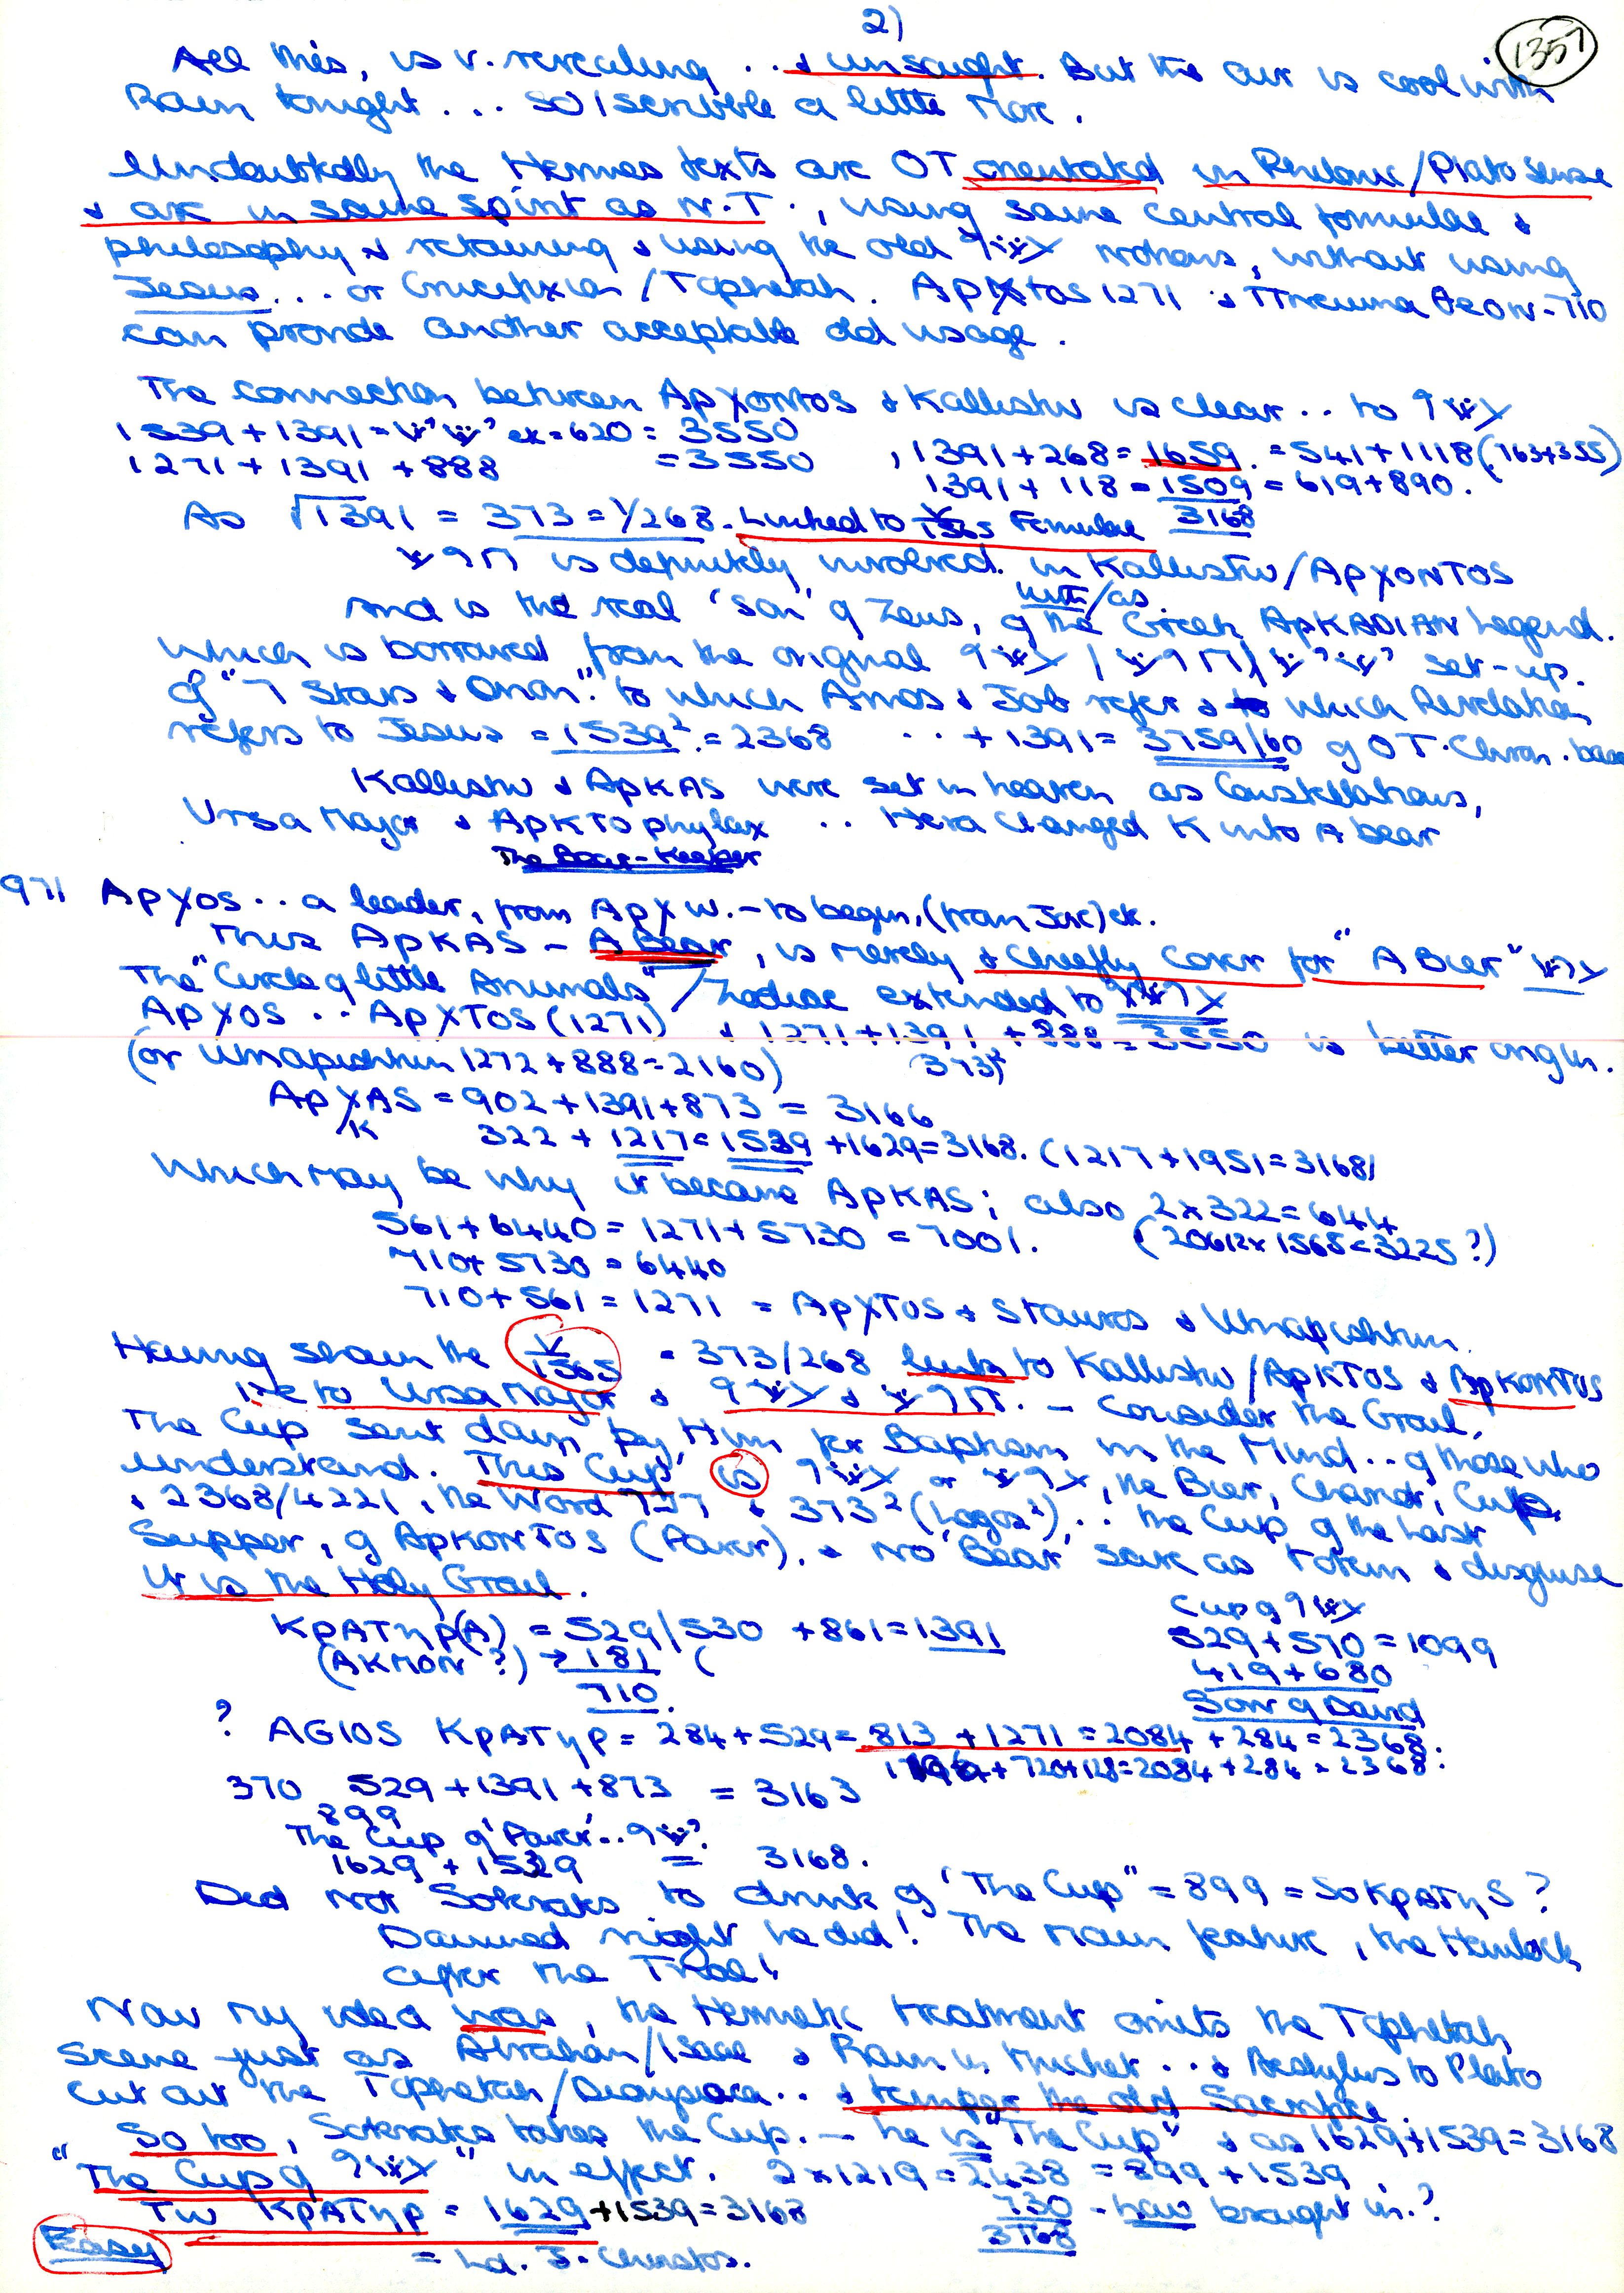 2)
1357
All this, is v. revealing .. & unsought. But the air is cool with
Rain tonight ... so I scribble a little more.
Undoubtedly the Hermes texts are OT orientated in Philonic/Plato sense
& are in same spirit as N.T., using same central formulae &
philosophy & retaining & using the old notions, without using
Jesus ... or Crucifixion/Tophetah. ApXtos 1271 & Pneuma Aeon - 710
can provide another acceptable old usage.
The connection between ApXontos & Kallistw is clear .. to
1539 + 1391 = ex = 620 = 3550
1271 + 1391 + 888 = 3550 , 1391 + 268 = 1659. = 541 + 1118 (763+355)
1391 + 118 = 1509 = 619 + 890.
As √1391 = 373 = 1/268. Linked to V/1565 Formulae 3168
is definitely involved in Kallistw/ApXONTOS
And is the real 'son' of Zeus, with/as of the Greek ApKADIAN Legend.
Which is borrowed from the original set-up.
of "7 Stars & Orion" to which Amos & Job refer & to which Revelation
refers to Jesus = 1539² = 2368 .. + 1391 = 3759/60 of OT. Chron. base
Kallistw & ApKAS were set in heaven as Constellations,
Ursa Major & ApKTophylax .. Hera changed K into A bear
The Bear-Keeper
971 ApXos .. a leader, from ApXw. - to begin, etc.
Thus ApKAS - A Bear, is merely & chiefly cover for "A Bier"
The "Circle of little Animals"/Zodiac extended to
ApXos .. ApXTOS (1271) & 1271 + 1391 + 888 = 3550 is better origin.
(or Utnapishtim 1272 + 888 = 2160) 373²
ApXAS = 902 + 1391 + 873 = 3166
K 322 + 1217 = 1539 + 1629 = 3168. (1217 + 1951 = 3168)
Which may be why it became ApKAS; also 2 x 322 = 644
561 + 6440 = 1271 + 5730 = 7001. (20612 x 1565 = 3225?)
710 + 5730 = 6440
710 + 561 = 1271 = ApXTOS & Stauros & Utnapishtim
Having shown the V/1565 = 373/268 links to Kallistw/ApKTOS & ApKONTOS
to Ursa Major & & . - Consider the Grail,
The Cup sent down by Him for Baptism in the Mind .. of those who
understand. This 'Cup' is or , the Bier, Chariot, Cup,
& 2368/4221, the Word & 373² (Logos²), .. the Cup of the Last
Supper, of ApKONTOS (Power), & no 'Bear' save as totem & disguise
It is the Holy Grail.
KpATηp(A) = 529/530 + 861 = 1391
(AKMON ?) → 181
710.
Cup of
529 + 570 = 1099
419 + 680
Son of David
? AGIOS KpATηp = 284 + 529 = 813 + 1271 = 2084 + 284 = 2368.
+ 720 + 128 = 2084 + 284 = 2368.
370 529 + 1391 + 873 = 3163
899
The Cup of 'Power' ..
1629 + 1539 = 3168.
Did not Sokrates to drink of 'The Cup" = 899 = SoKpATηS?
Damned right he did! The main feature, the Hemlock,
after the Trial!
Now my idea was, the Hermetic treatment omits the Tophetah
Scene just as Abraham/Isaac & Ram in thicket .. & Aeskylus to Plato
cut out the Tophetah .. & temper the old Sacrifice.
So too, Sokrates takes the Cup. - he is "The Cup" & as 1629 + 1539 = 3168
"The Cup of " in effect. 2 x 1219 = 2438 = 899 + 1539
Tw KpATηp = 1629 + 1539 = 3168 730 - how brought in?
3168
Easy = Ld. J. Christos.